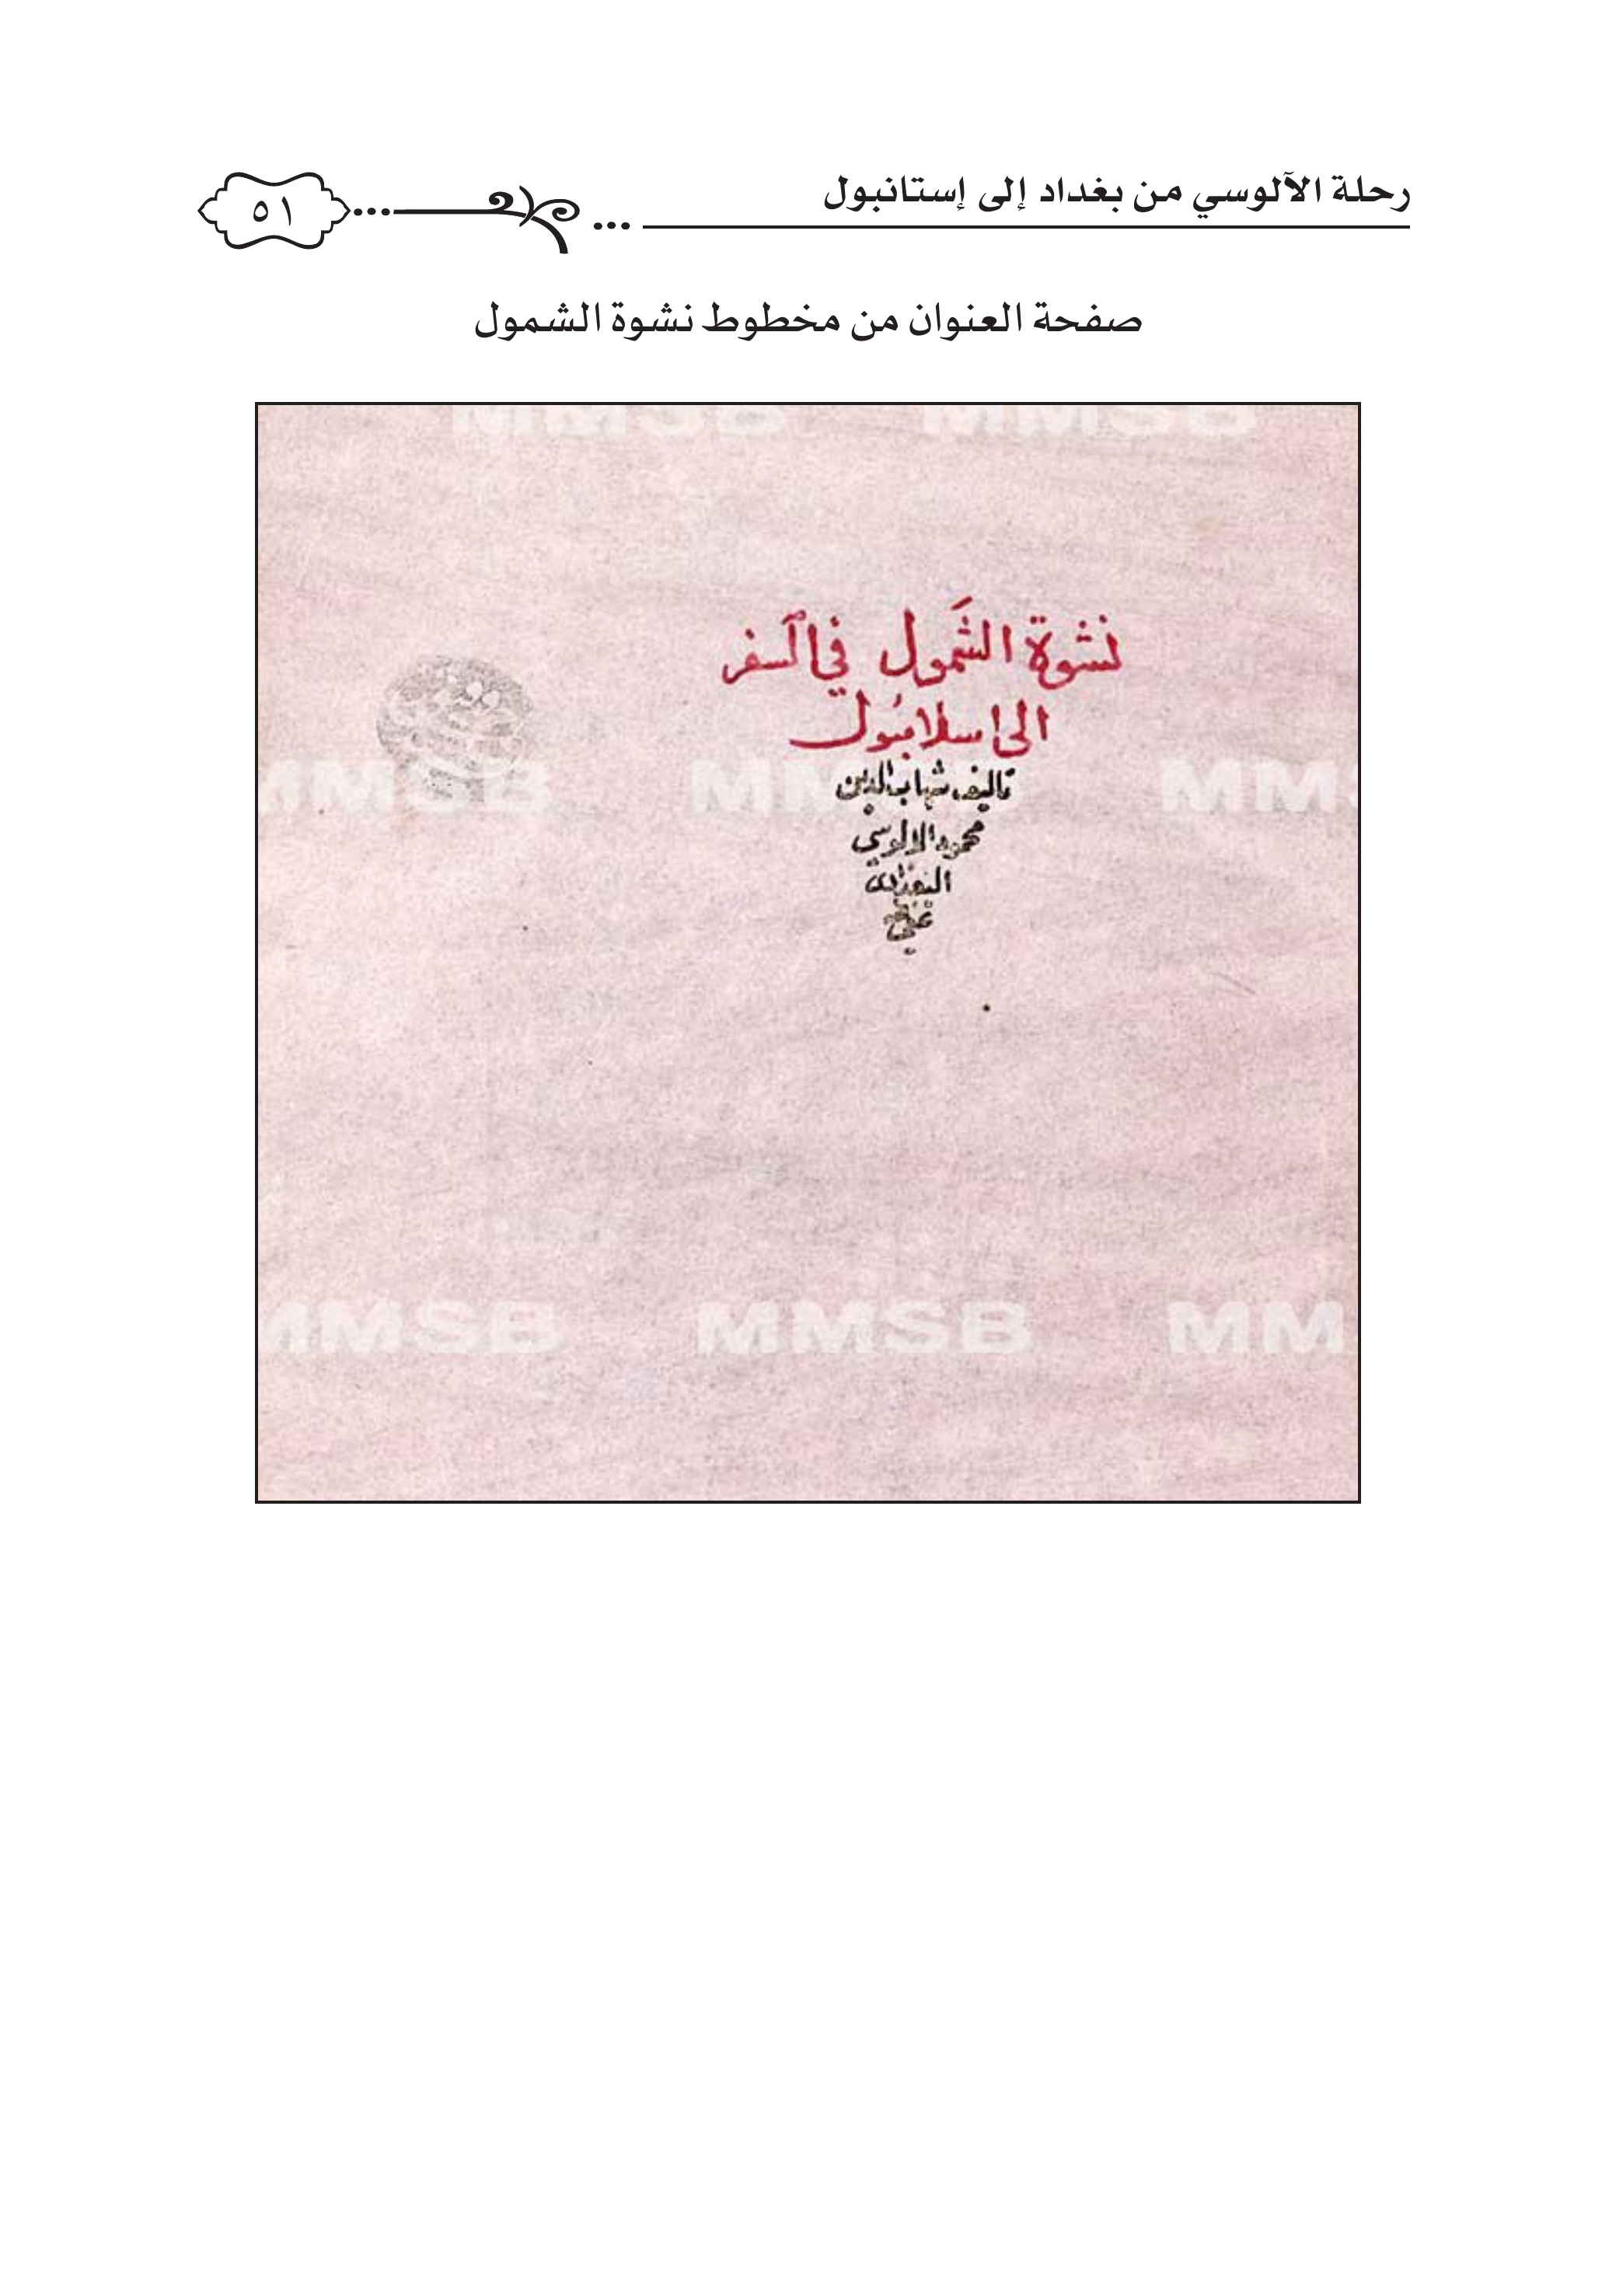 رحلة الآلوسي من بغداد إلى إستانبول
٥١
صفحة العنوان من مخطوط نشوة الشمول
MMSB MMSB
نشوة الشَمول في السفر
الى اسلامبُول
تاليف شهاب الدين
MMSB MM MMS
محمود الالوسي
البغدادي
MMSB MMSB MM